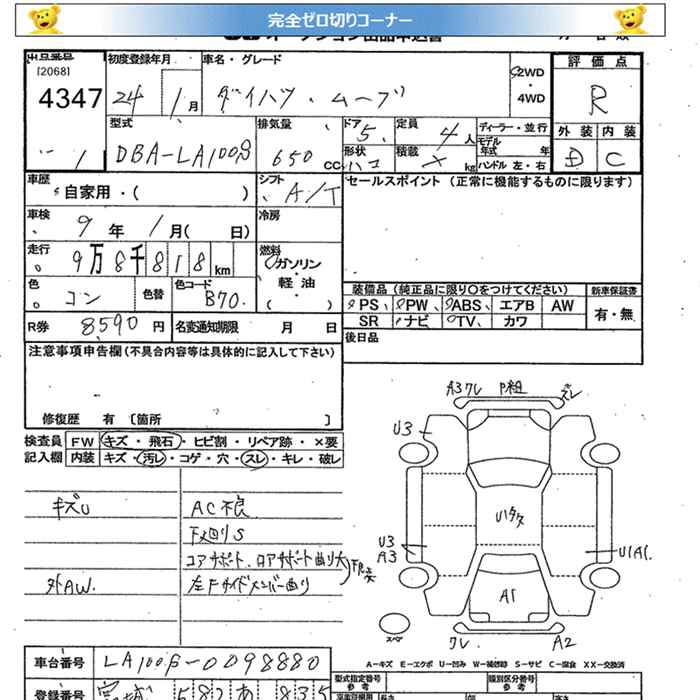 完全ゼロ切りコーナー
出品番号 初度登録年月 車名・グレード 2WD 評価点
[2068]
4347 24 1月 ダイハツ・ムーブ ・4WD R
型式 排気量 ドア 定員 ディーラー・並行 外装 内装
5 4人 モデル年式 年
DBA-LA100S 650cc 形状 積載 kg ハンドル 左・右 C
ハコ
車歴 シフト セールスポイント (正常に機能するものに限ります)
自家用・( ) A/T
車検 9年 1月( 日) 冷房
走行 9万8千818km 燃料
ガソリン
・軽油・
( )
色 コン 色替 色コード B70
装備品(純正品に限り○をつけてください) 新車保証書
PS、PW、ABS、エアB AW 有・無
SR ナビ TV、カワ
R券 8590円 名変通知期限 月 日
後日品
注意事項申告欄(不具合内容等は具体的に記入して下さい)
修復歴 有〔箇所 〕
検査員 FW キズ・飛石・ヒビ割・リペア跡・×要
記入欄 内装 キズ・汚レ・コゲ・穴・スレ・キレ・破レ
キズU AC不良
下廻りS
コアサポート、ロアサポート曲り大
外AW. 左Fサイドメンバー曲り
A3ワレ P組 ズレ
U3
U3
A3
U1A1
A1
ワレ A2
スペア
A-キズ E-エクボ U-凹み W-補修跡 S-サビ C-腐食 XX-交換済
車台番号 LA100S-0098880
型式指定番号 参考 類別区分番号 参考
登録番号 宮城 582 あ 835